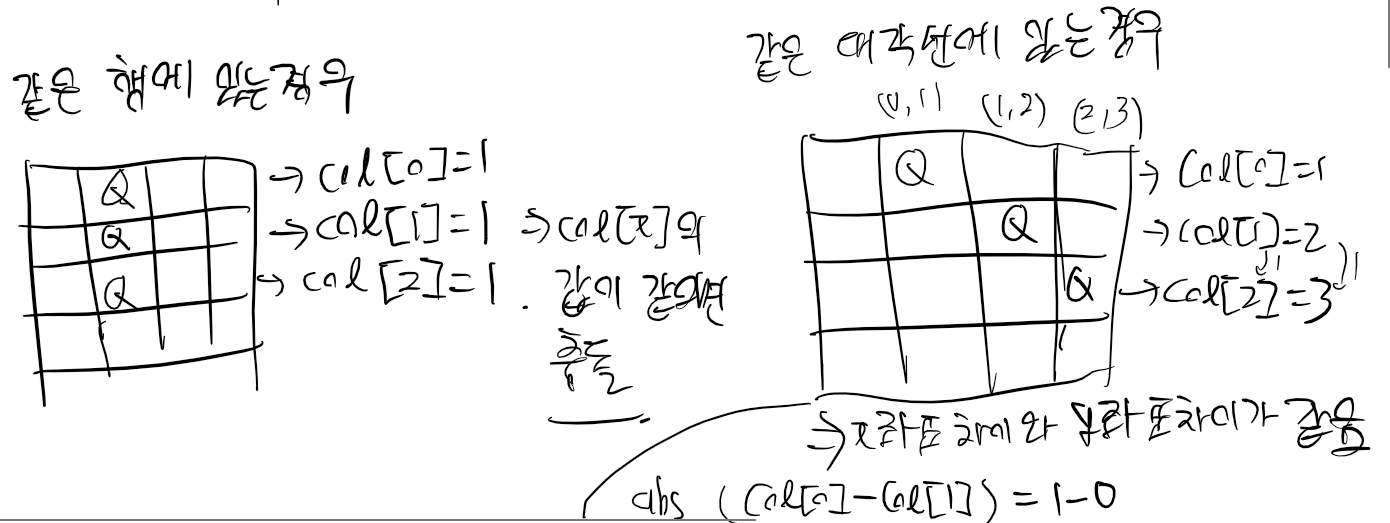 같은 행에 있는경우
Q → col[0]=1
Q → col[1]=1
Q → col[2]=1
⇒ col[x]의
값이 같으면
충돌
같은 대각선에 있는경우
(0,1) (1,2) (2,3)
Q → Col[0]=1
Q → Col[1]=2
Q → Col[2]=3
1 1
⇒ x좌표 차이와 y좌표차이가 같음
abs (Col[0]-Col[1]) = 1-0